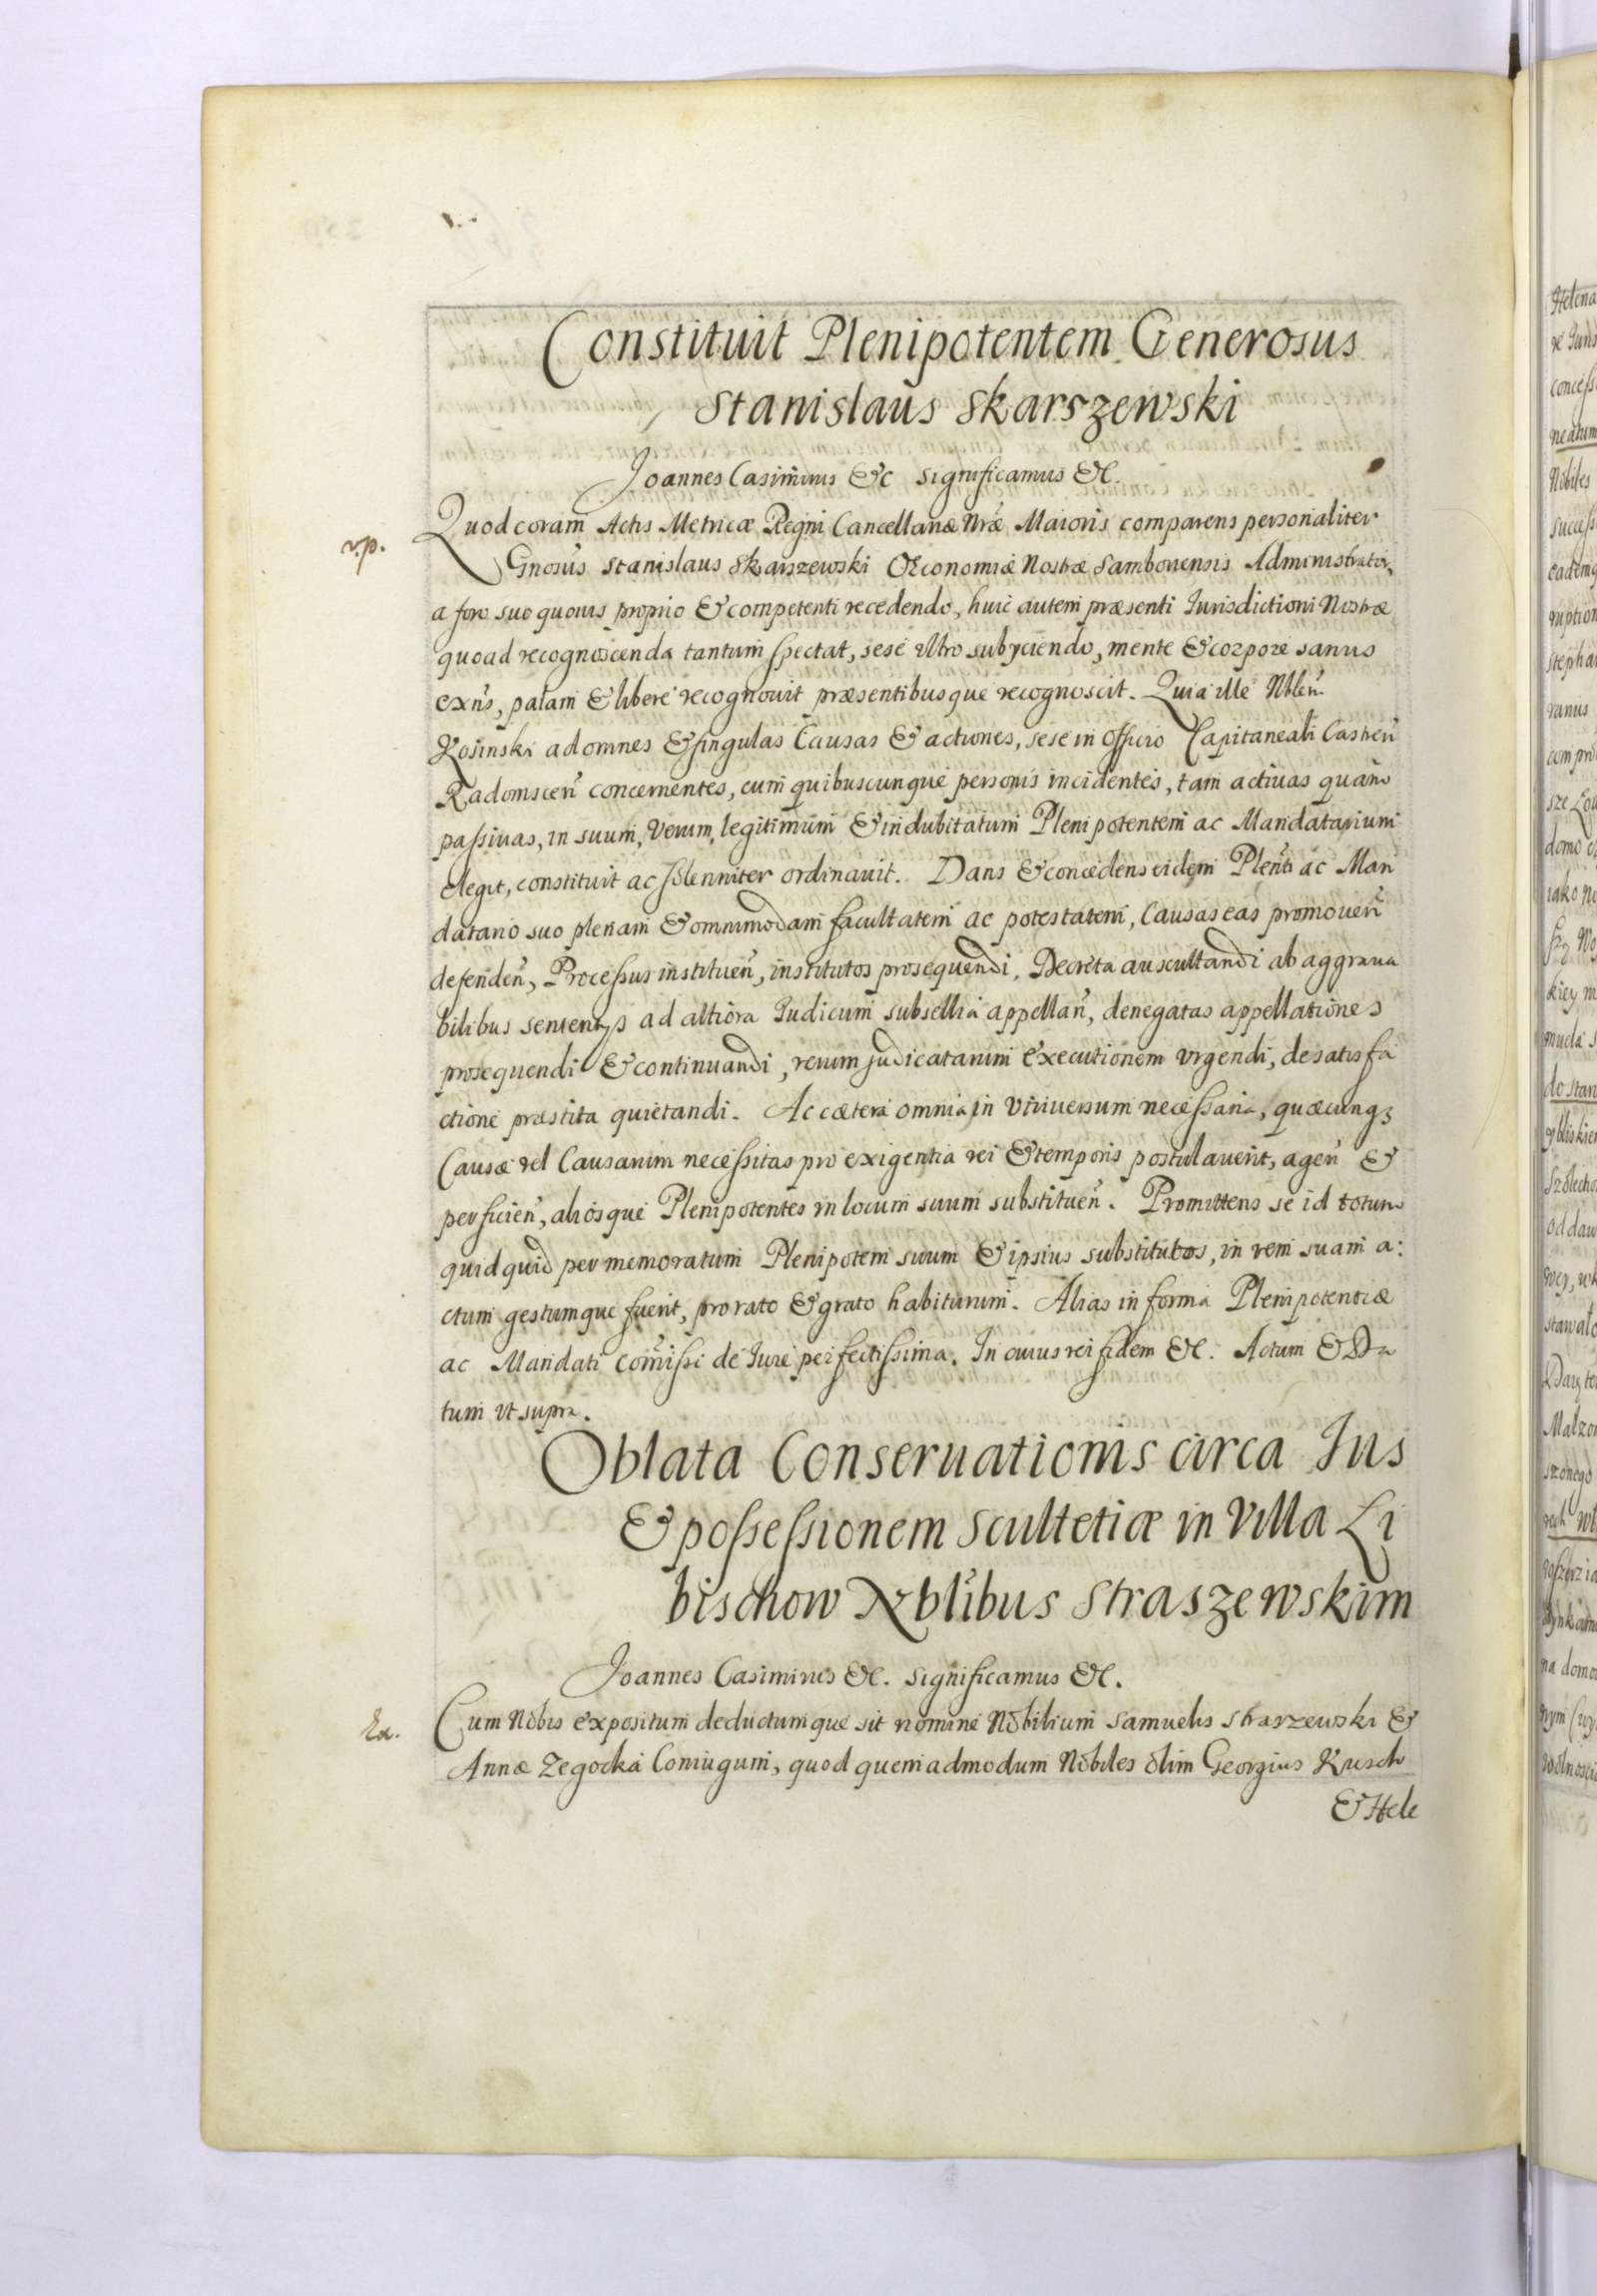 Constituit Plenipotentem Generosus
Stanislaus Skarszewski
Joannes Casimirus &c Significamus &c.
Quod coram Actis Metricæ Regni Cancellariæ Nræ Maioris comparens personaliter
r.p.
Gnosus Stanislaus Skarszewski Œconomiæ Nostræ Samboriensis Administrator,
a foro suo quovis proprio & competenti recedendo, huic autem præsenti Iurisdictioni Nostræ
quoad recognoscenda tantum spectat, sese ultro subyciendo, mente & corpore sanus
exns, palam & libere recognovit præsentibusque recognoscit. Quia ille Nblen
Kosinski ad omnes & singulas Causas & actiones, sese in Officio Capitaneali Castren
Radomscen concernentes, cum quibuscunque personis incidentes, tam activas quam
passivas, in suum, verum, legitimum & indubitatum Plenipotentem ac Mandatarium
elegit, constituit ac solenniter ordinavit. Dans & concedens eidem Plenti ac Man
datario suo plenam & omnimodam facultatem ac potestatem, Causas eas promoven
defenden, Processus instituen, institutos prosequendi, Decreta auscultandi ab aggrava
bilibus sententys ad altiora Iudicum subsellia appellan, denegatas appellationes
prosequendi & continuandi, rerum judicatarum executionem vrgendi, de satisfa
ctione præstita quietandi. Ac cætera omnia in vniversum necessaria, quæcunq3
Causæ vel Causarum necessitas pro exigentia rei & temporis postulaverit, agen &
perficien, aliosque Plenipotentes in locum suum substituen. Promittens se id totum
quidquid per memoratum Plenipotem suum & ipsius substitutos, in rem suam a:
ctum gestumque fuerit, pro rato & grato habiturum. Alias in forma Plenipotentiæ
ac Mandati comissi de Iure perfectissima. In cuius rei fidem &c. Actum & Da
tum vt supra.
Oblata Conseruationis circa Ius
& possessionem Scultetiæ in Villa Li
bischow Nblibus Straszewskim
Joannes Casimirus &c. Significamus &c.
Ex.
Cum Nobis expositum deductumque sit nomine Nobilium Samuelis Strarzewski &
Annæ Zegocka Coniugum, quod quemadmodum Nobiles olim Georgius Krusch
& Hele